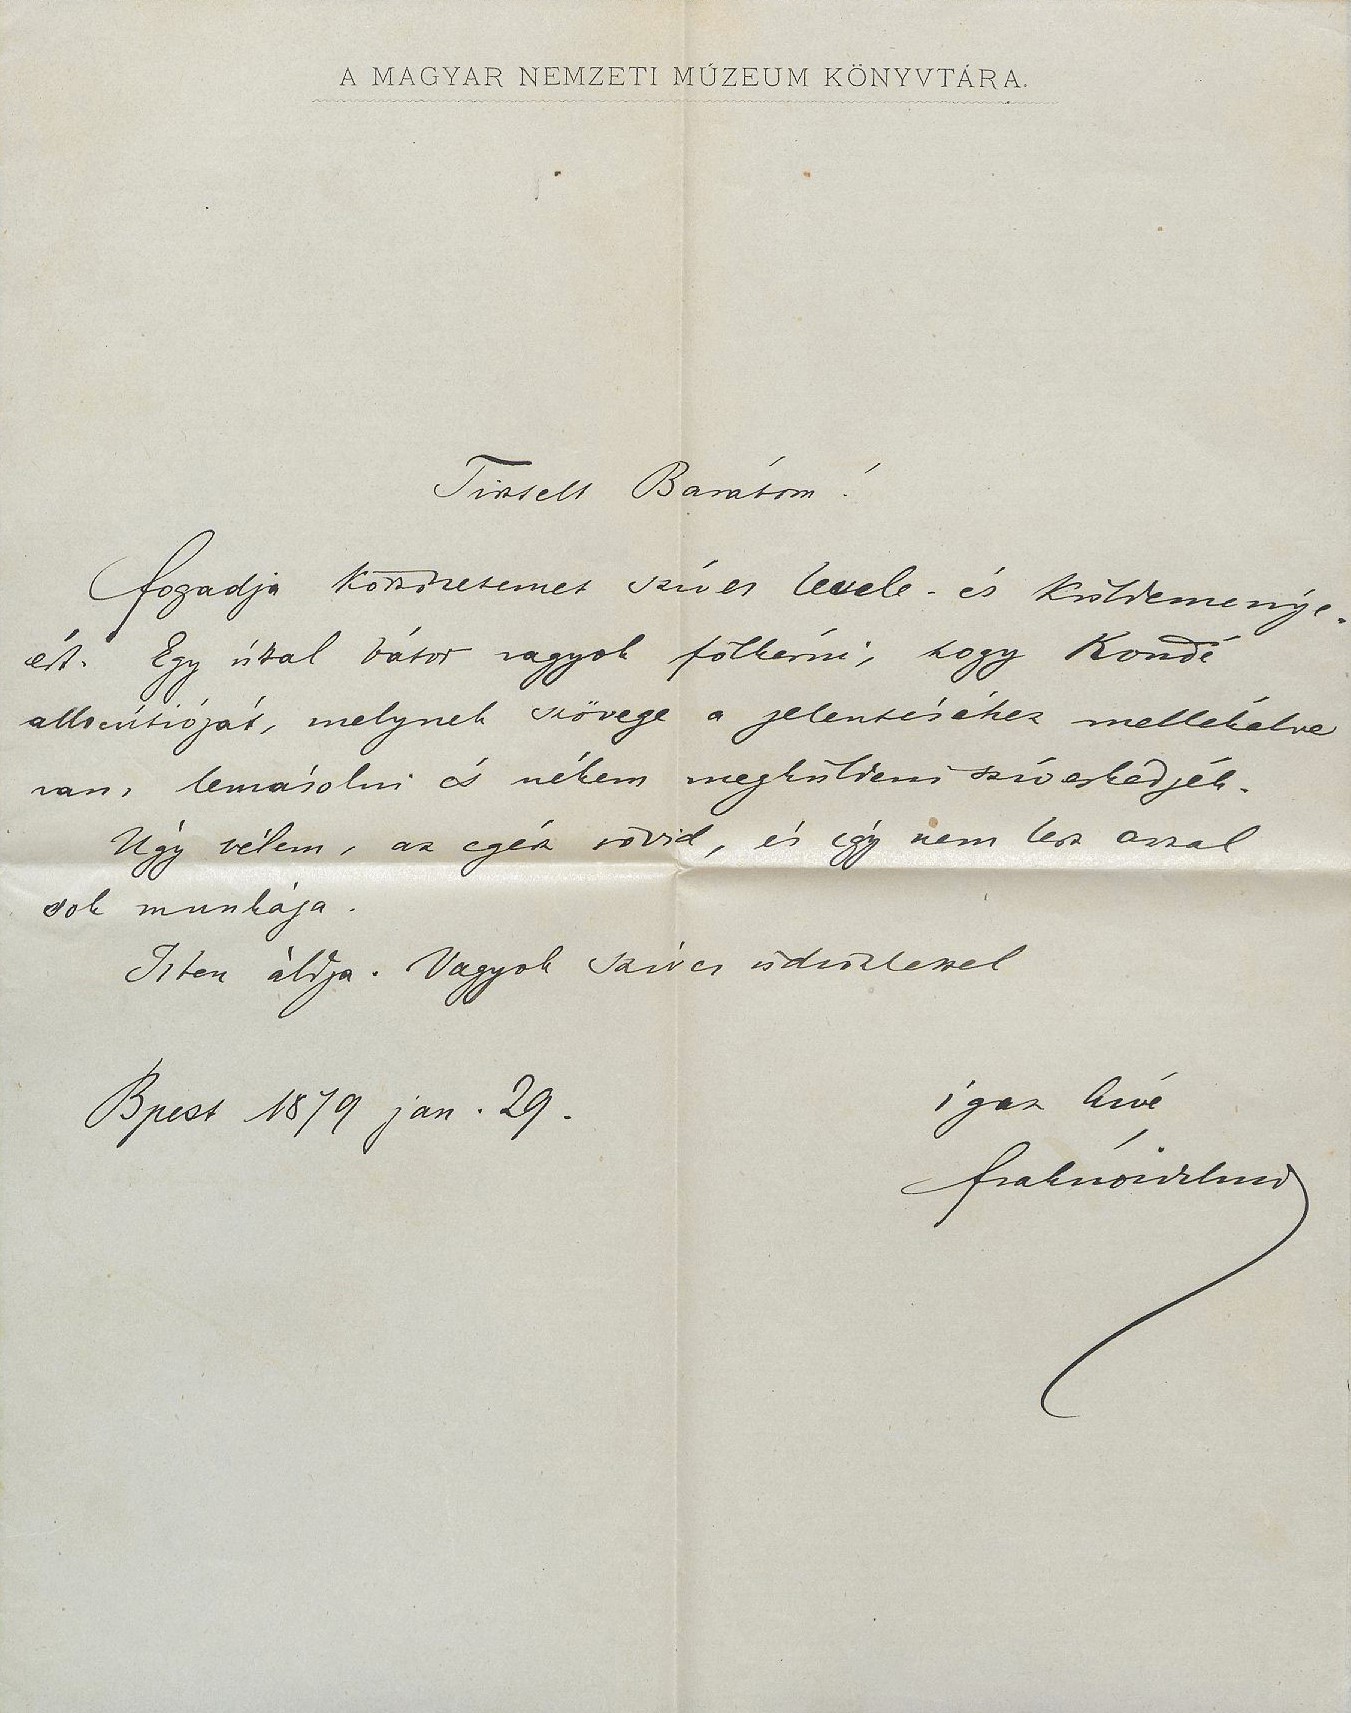 A MAGYAR NEMZETI MÚZEUM KÖNYVTÁRA.
Tisztelt Barátom!
fogadja köszönetemet szíves levele- és küldeménye-
ért. Egy úttal bátor vagyok fölkérni, hogy Kondé
allocútióját, melynek szövege a jelentéséhez mellékelve
van, lemásolni és nékem megküldeni szíveskedjék.
Úgy vélem, az egész rövid, és így nem lesz azzal
sok munkája.
Isten áldja. Vagyok szíves üdvözlettel
Bpest 1879 jan. 29.
igaz híve
fraknóivilmos